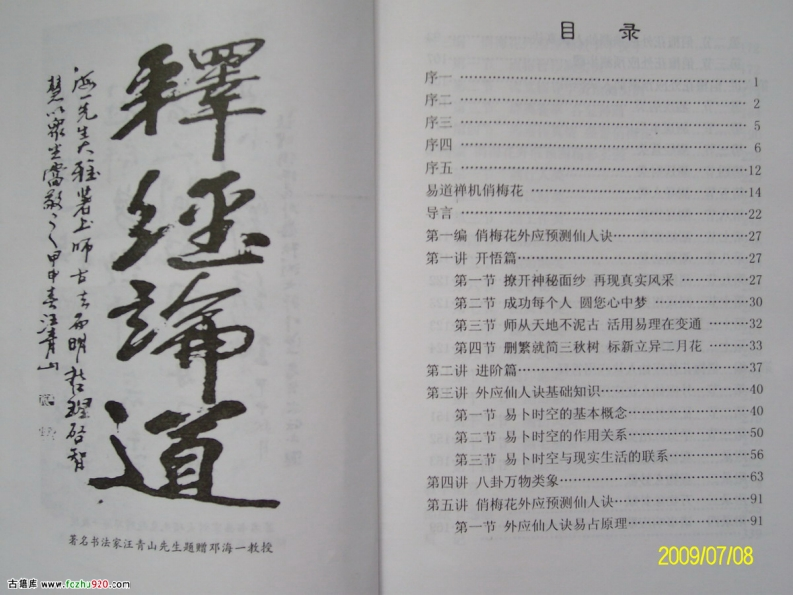 釋經論道
海一先生大雅
甲申春汪青山
著名书法家汪青山先生题赠邓海一教授
目 录
序一……1
序二……2
序三……5
序四……6
序五……12
易道禅机俏梅花……14
导言……22
第一编 俏梅花外应预测仙人诀……27
第一讲 开悟篇……27
第一节 撩开神秘面纱 再现真实风采……27
第二节 成功每个人 圆您心中梦……30
第三节 师从天地不泥古 活用易理在变通……32
第四节 删繁就简三秋树 标新立异二月花……33
第二讲 进阶篇……37
第三讲 外应仙人诀基础知识……40
第一节 易卜时空的基本概念……40
第二节 易卜时空的作用关系……50
第三节 易卜时空与现实生活的联系……56
第四讲 八卦万物类象……63
第五讲 俏梅花外应预测仙人诀……91
第一节 外应仙人诀易占原理……91
2009/07/08
古籍库 www.fczhu920.com